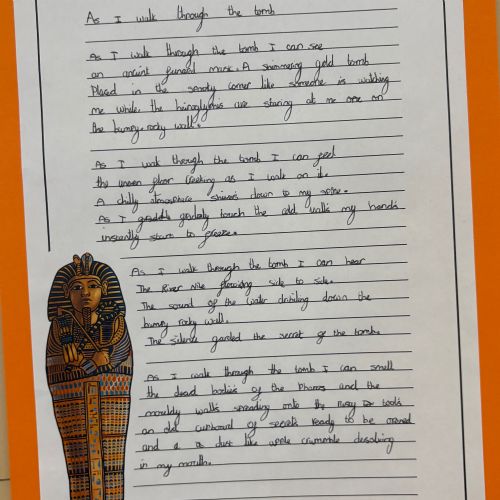 As I walk through the tomb
As I walk through the tomb I can see
an ancint funard mask. A shimmering gold tomb
Placed in the sandy corner like someone is watching
me while the heiroglyphics are staring at me one on
the bumpy rocky wall.
As I walk through the tomb I can feel
the uneven floor creeking as I walk on it.
A chilly atmosphere shivers down to my spine.
As I gradully touch the cold walls my hands
instantly start to freeze.
As I walk through the tomb I can hear
The River nile flowing side to side.
The sound of the water dribiling down the
bumpy rocky wall.
The silence garded the secret of the tomb.
As I walk through the tomb I can smell
the dead bodies of the Pharos and the
mouldy walls spreading onto the rusty tools
an old cupboard of secrets ready to be opened
and a dust like apple crumomble desolving
in my mouth.